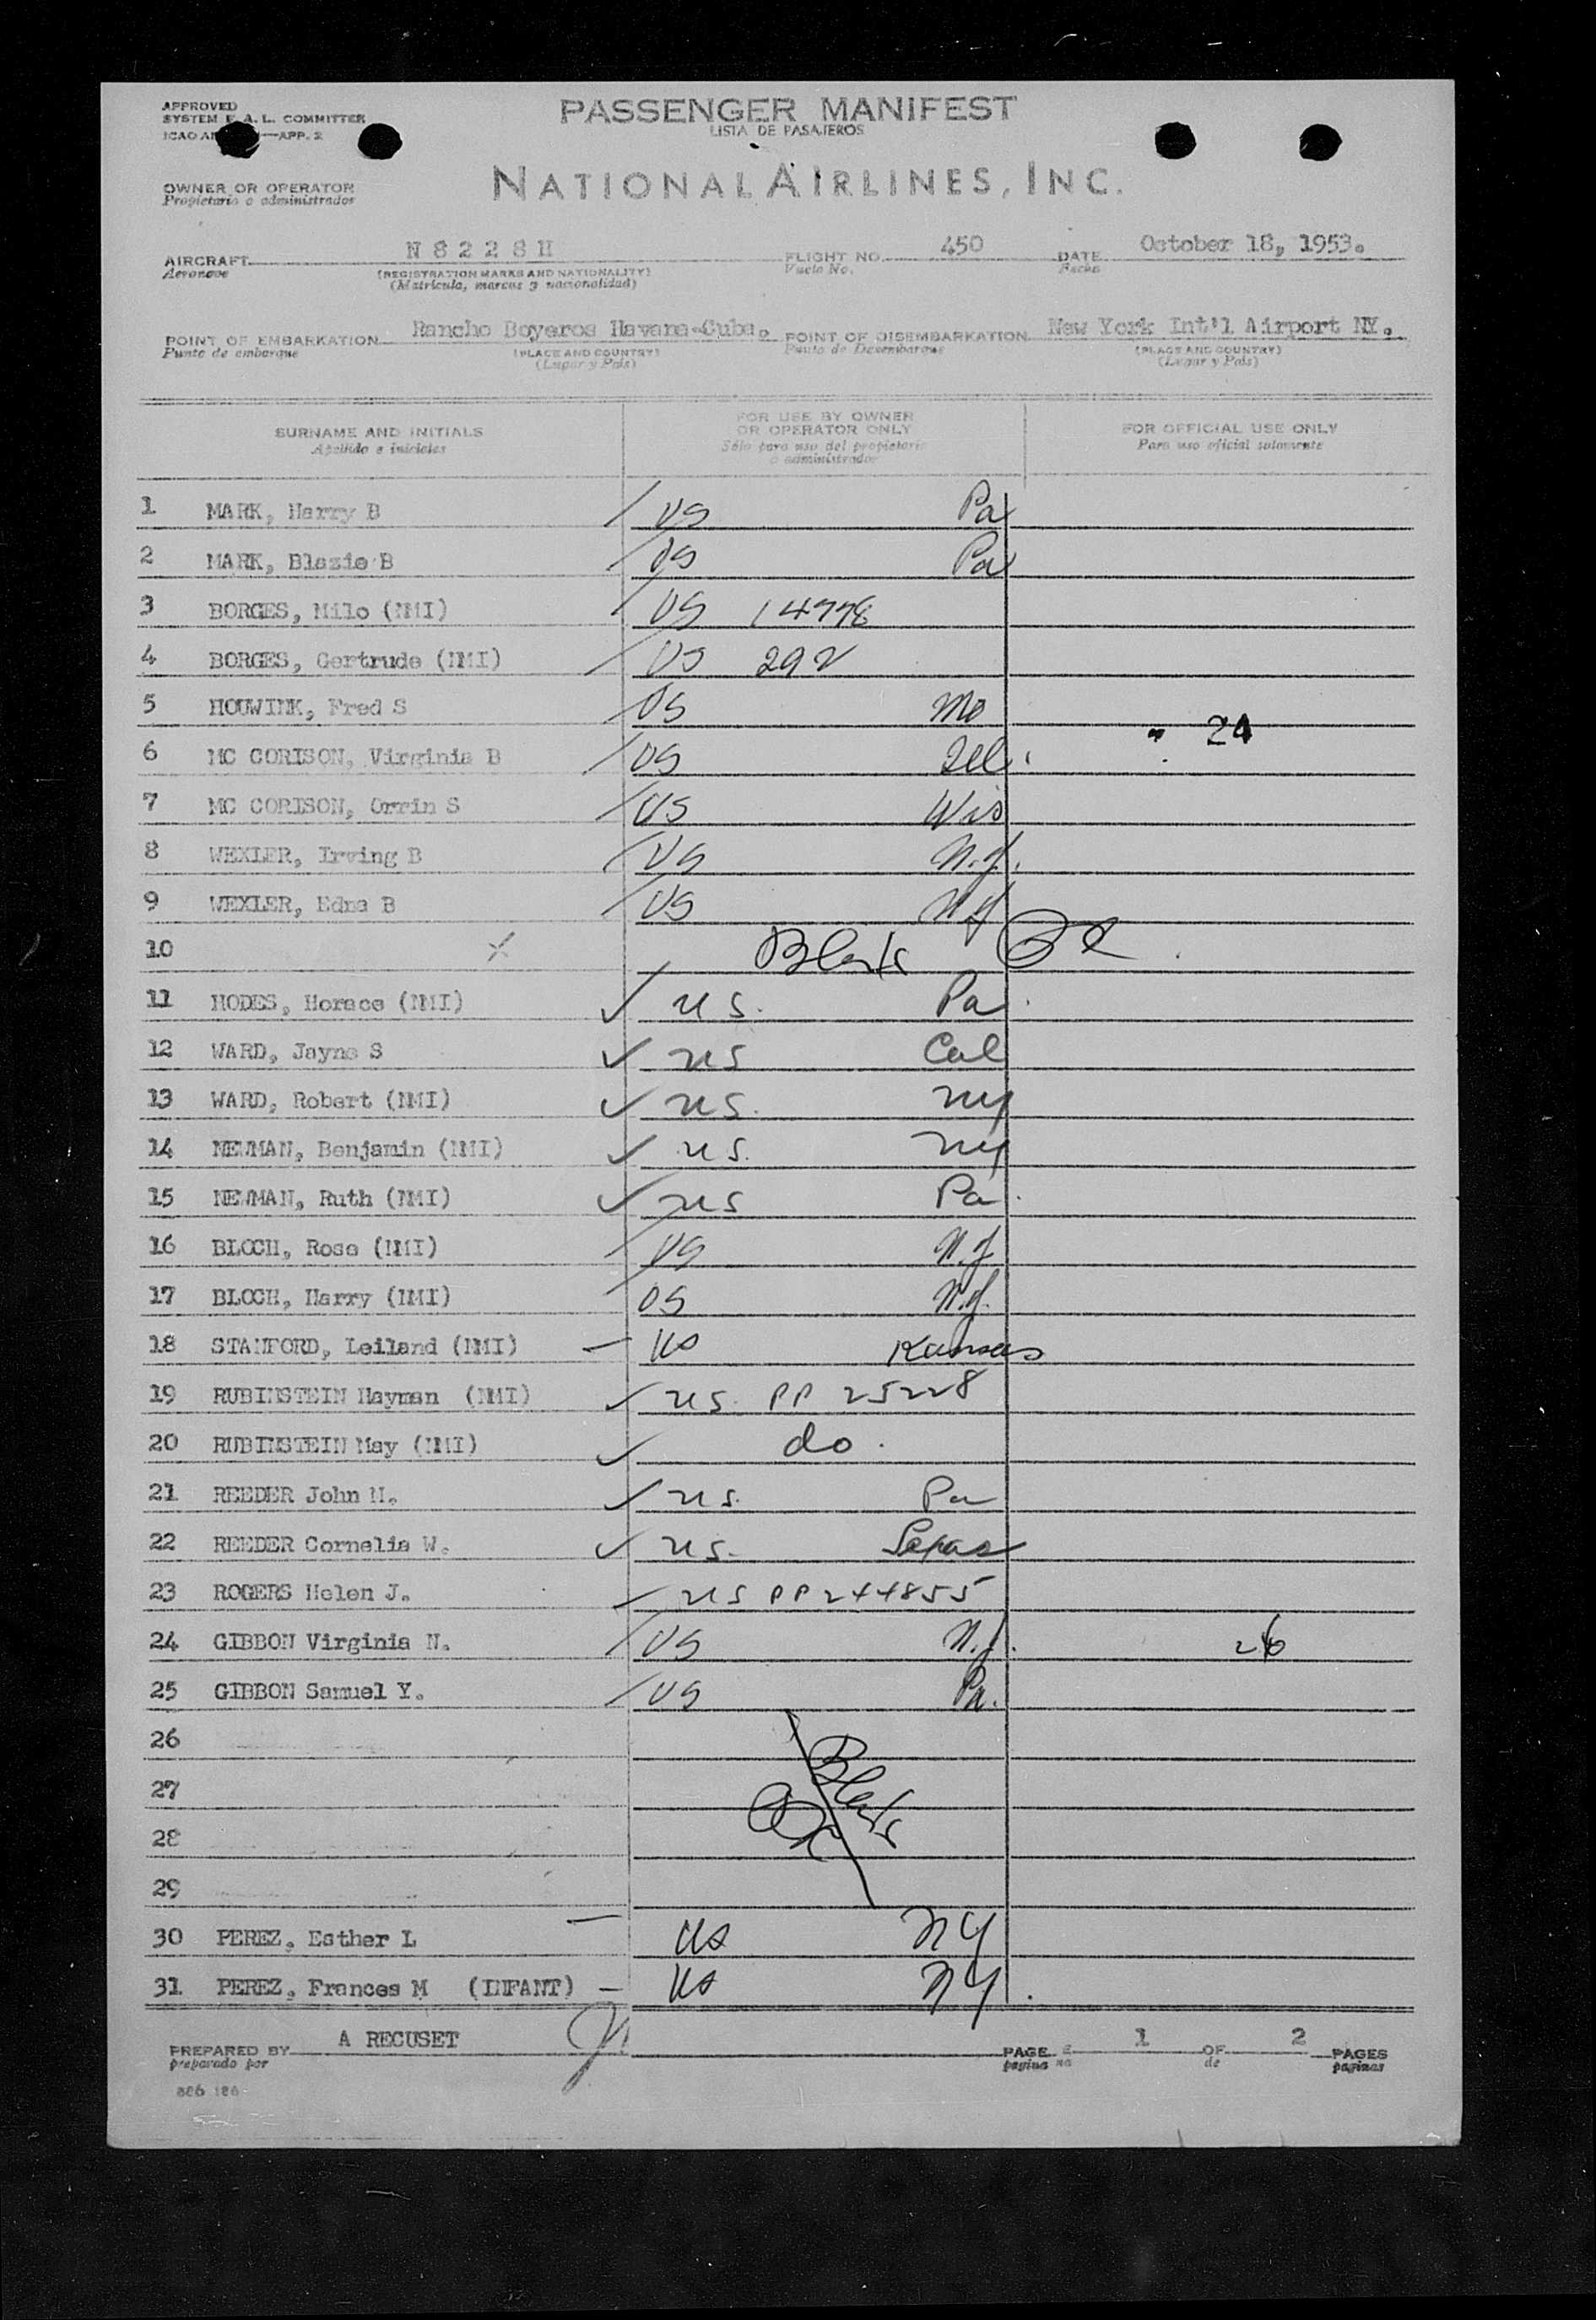 APPROVED
SYSTEM F. A. L. COMMITTER
ICAO —APP. 2
PASSENGER MANIFEST
LISTA DE PASAJEROS
OWNER OR OPERATOR
Propietario o administrador
NATIONAL AIRLINES, INC.
AIRCRAFT N 8 2 2 8 H FLIGHT NO. 450 DATE October 18, 1953.
Aeronave (REGISTRATION MARKS AND NATIONALITY) Vuelo No. Fecha
(Matricula, marcas y nacionalidad)
POINT OF EMBARKATION Rancho Boyeros Havana-Cuba. POINT OF DISEMBARKATION New York Int'l Airport NY.
Punto de embarque (PLACE AND COUNTRY) Punto de Desembarque (PLACE AND COUNTRY)
(Lugar y País) (Lugar y País)
SURNAME AND INITIALS FOR USE BY OWNER OR OPERATOR ONLY FOR OFFICIAL USE ONLY
Apellido e iniciales Sólo para uso del propietario o administrador Para uso oficial solamente
1 MARK, Harry B US Pa
2 MARK, Blazie B US Pa
3 BORGES, Milo (NMI) US 14778
4 BORGES, Gertrude (NMI) US 292
5 HOUWINK, Fred S US Mo
24
6 MC CORISON, Virginia B US Ill.
7 MC CORISON, Orrin S US Wis
8 WEXLER, Irving B US N.J.
9 WEXLER, Edna B US NJ
10 Blank
11 HODES, Horace (NMI) US. Pa.
12 WARD, Jayne S US Cal
13 WARD, Robert (NMI) US. NY
14 NEWMAN, Benjamin (NMI) US. NY
15 NEWMAN, Ruth (NMI) US Pa.
16 BLOCH, Rose (NMI) US N.J
17 BLOCH, Harry (NMI) US N.J.
18 STANFORD, Leiland (NMI) US Kansas
19 RUBINSTEIN Hayman (NMI) US. PP 25228
20 RUBINSTEIN May (NMI) do.
21 REEDER John H. US. Pa
22 REEDER Cornelia W. US. Texas
23 ROGERS Helen J. US PP 244855
24 GIBBON Virginia N. US N.J. 26
25 GIBBON Samuel Y. US Pa.
26
27 Blank
28
29
30 PEREZ, Esther L US NY
31 PEREZ, Frances M (INFANT) US NY.
PREPARED BY A RECUSET PAGE 1 OF 2 PAGES
preparado por pagina no de paginas